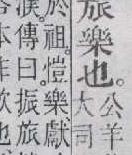 旅樂也。
公羊
大司
於祖。愷樂獻
傳曰。振旅